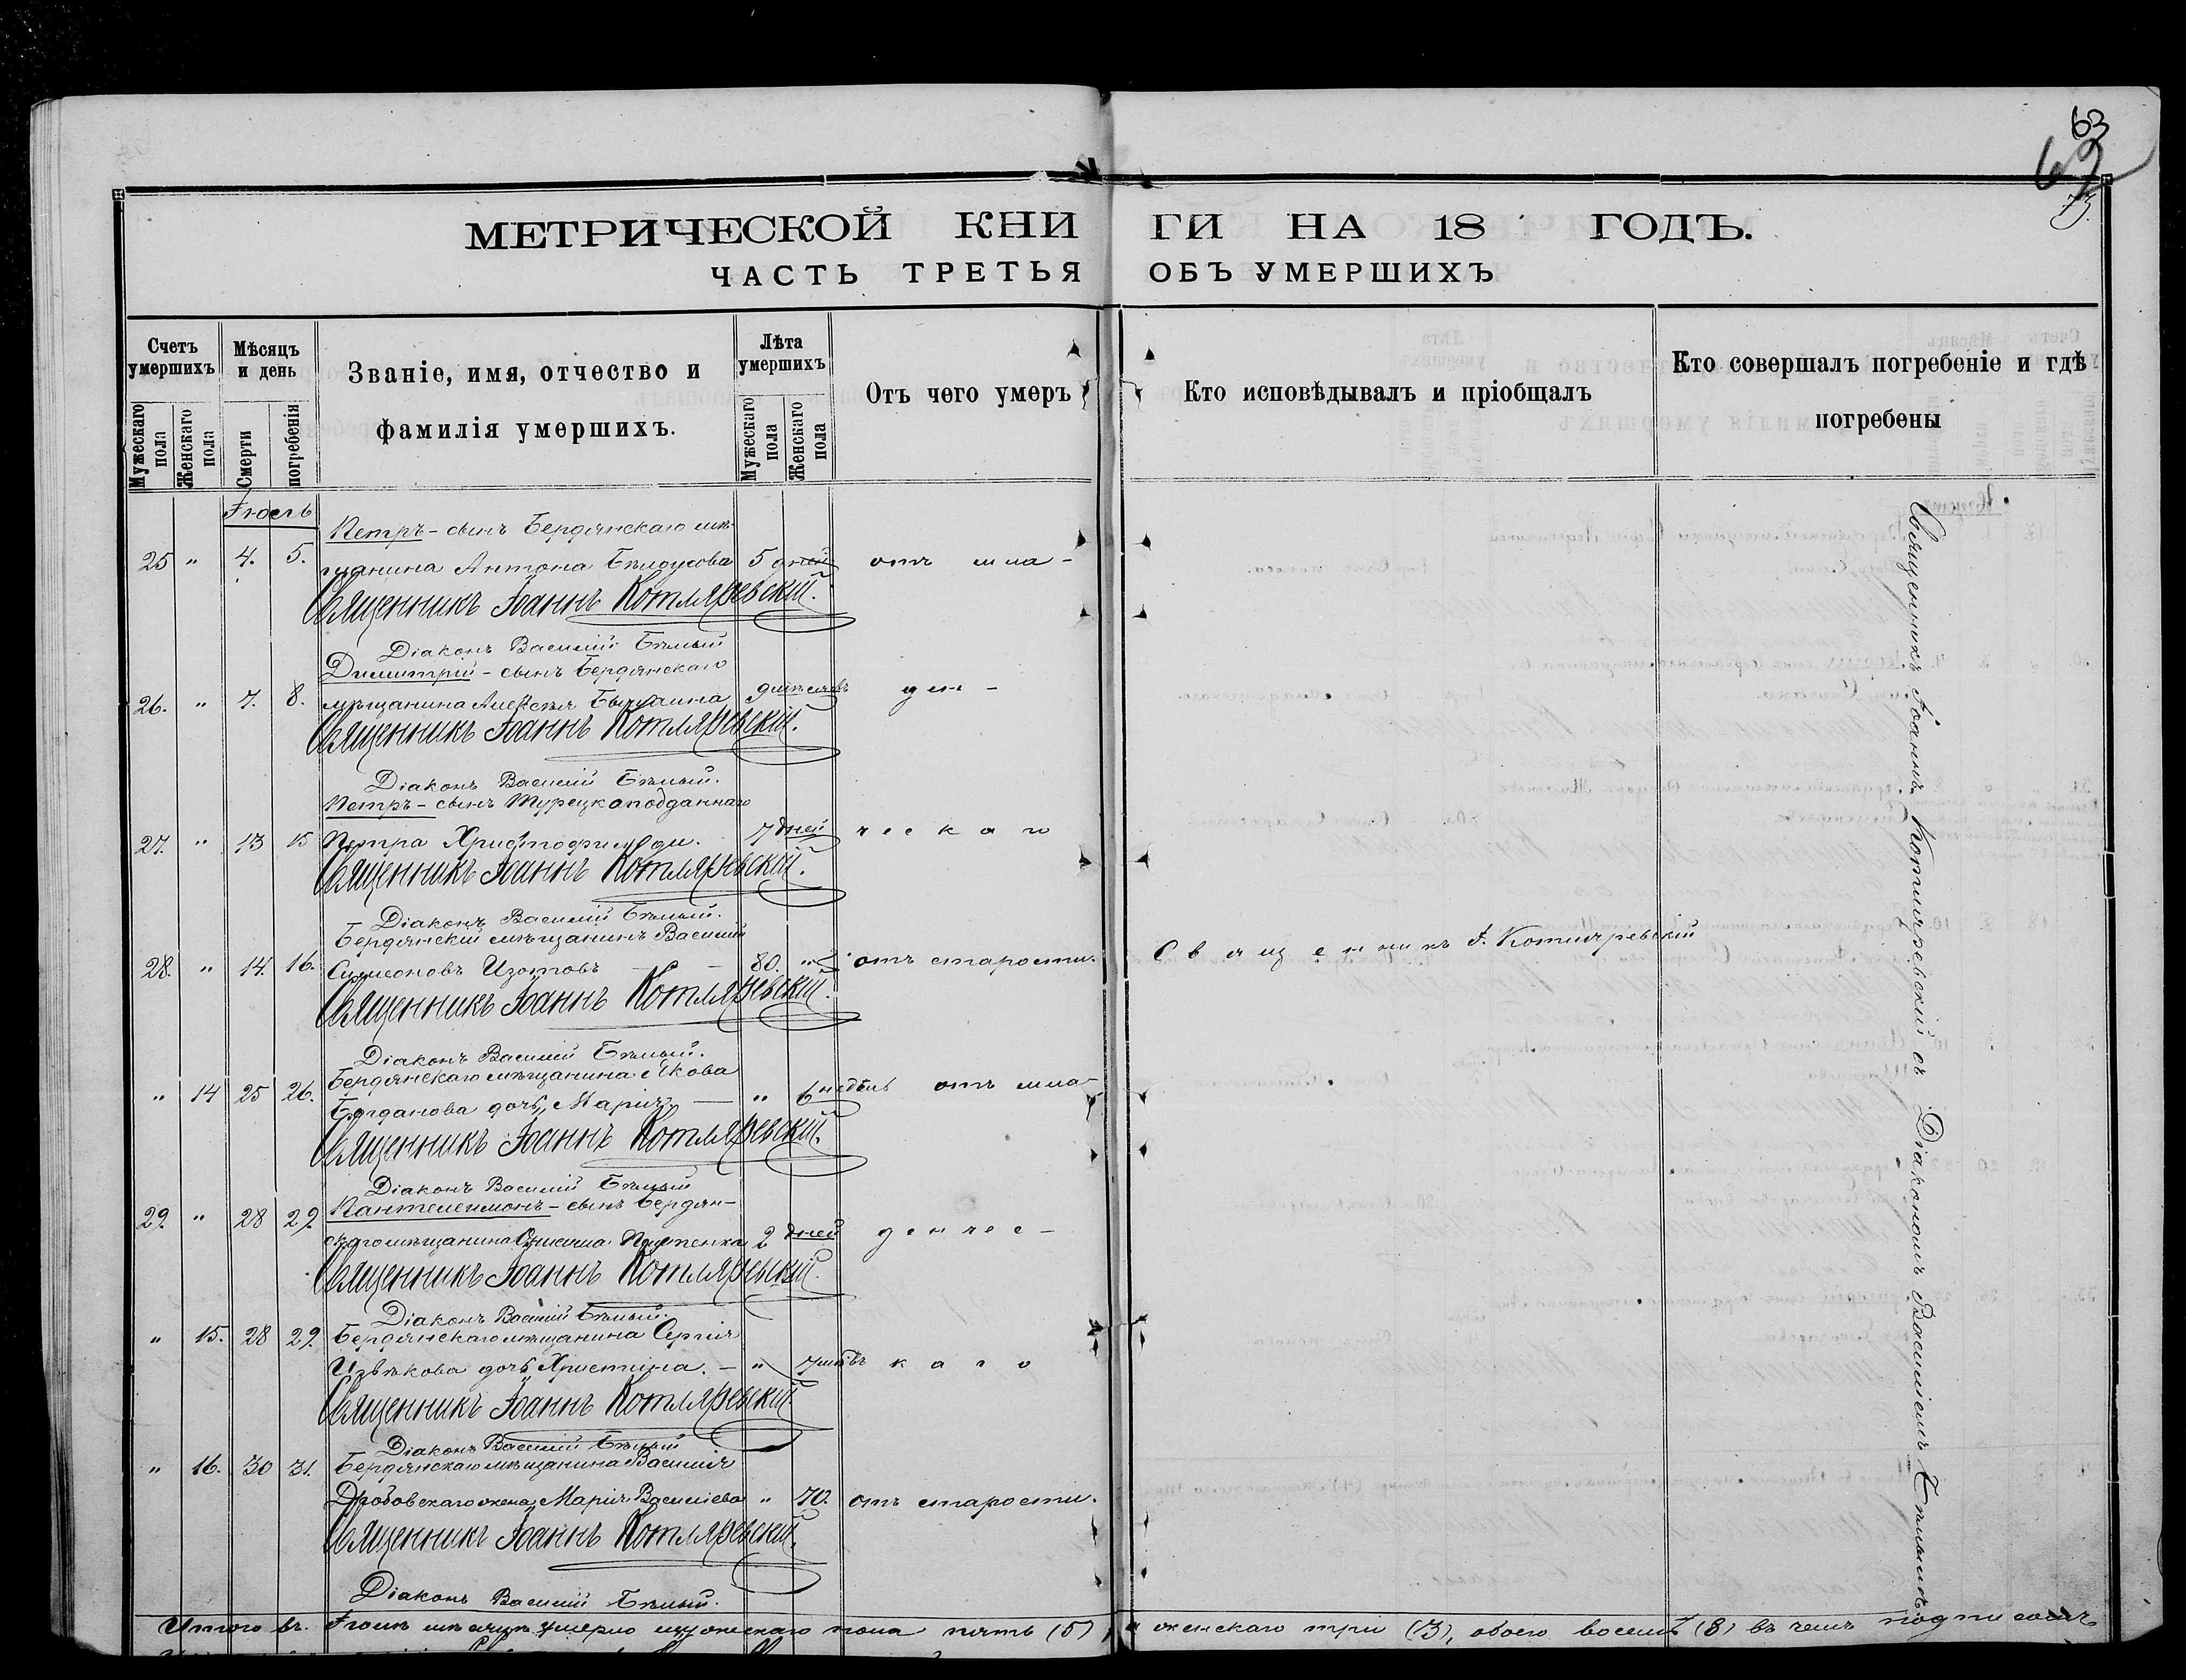 63
63
73.
МЕТРИЧЕСКОЙ КНИГИ НА 18 ГОДЪ.
ЧАСТЬ ТРЕТЬЯ ОБЪ УМЕРШИХЪ
Счетъ умершихъ
Мужескаго пола
Женскаго пола
Мѣсяцъ и день
Смерти
погребенія
Званіе, имя, отчество и
фамилія умершихъ.
Лѣта умершихъ
Мужескаго пола
Женскаго пола
Отъ чего умеръ
Кто исповѣдывалъ и пріобщалъ
Кто совершалъ погребеніе и гдѣ
погребены
Іюль
Петръ - сынъ Бердянскаго мѣ-
25 " 4. 5. щанина Антона Бѣлоусова 5 дней отъ мла-
Священникъ Іоаннъ Котляревскій.
Діаконъ Василій Бѣлый
Димитрій - сынъ Бердянскаго
26. " 7. 8. мѣщанина Алексѣя 9 мѣсяцевъ ден-
Священникъ Іоаннъ Котляревскій.
Діаконъ Василій Бѣлый.
Петръ - сынъ Турецкоподданнаго
27. " 13 15 Петра 7 дней ческаго
Священникъ Іоаннъ Котляревскій.
Діаконъ Василій Бѣлый.
Бердянскій мѣщанинъ Василій
28. " 14. 16. Симеоновъ Изотовъ — 80. " отъ старости. Священникъ І. Котляревскій
Священникъ Іоаннъ Котляревскій.
Діаконъ Василій Бѣлый.
Бердянскаго мѣщанина Якова
" 14 25 26. Богданова дочь, Марія, — " 6 недѣль отъ мла-
Священникъ Іоаннъ Котляревскій.
Діаконъ Василій Бѣлый
Пантелеимонъ - сынъ Бердян-
29. " 28 29. скаго мѣщанина 2 дней денчес-
Священникъ Іоаннъ Котляревскій.
Діаконъ Василій Бѣлый.
Бердянскаго мѣщанина Сергія
" 15. 28 29. Извѣкова дочь, Христина. — " 7 каго
Священникъ Іоаннъ Котляревскій.
Діаконъ Василій Бѣлый
Бердянскаго мѣщанина Василія
" 16. 30 31. Дробовскаго жена, Марія Василіева " 70. отъ старости.
Священникъ Іоаннъ Котляревскій.
Діаконъ Василій Бѣлый.
Священникъ Іоаннъ Котляревскій съ Діакономъ Василіемъ Бѣлымъ.
Итого въ Іюлѣ мѣсяцѣ умерло мужескаго пола пять (5), и женскаго три (3), обоего восемь (8) въ чемъ подписомъ